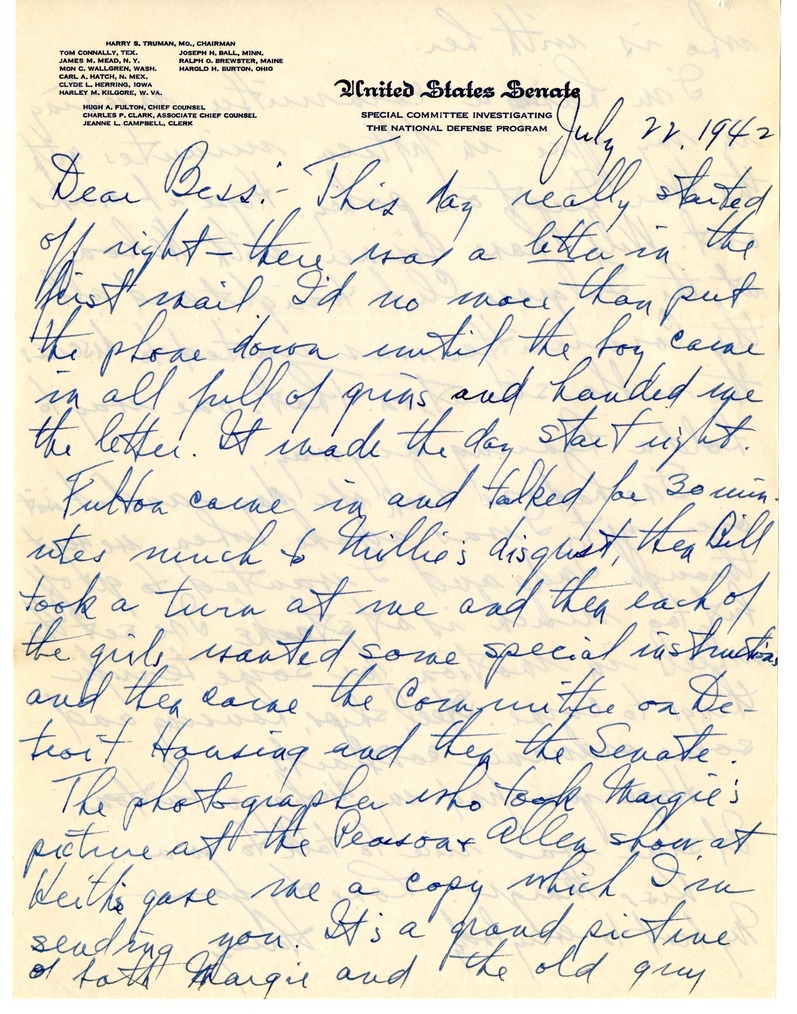 HARRY S. TRUMAN, MO., CHAIRMAN
TOM CONNALLY, TEX. JOSEPH H. BALL, MINN.
JAMES M. MEAD, N. Y. RALPH O. BREWSTER, MAINE
MON C. WALLGREN, WASH. HAROLD H. BURTON, OHIO
CARL A. HATCH, N. MEX.
CLYDE L. HERRING, IOWA
HARLEY M. KILGORE, W. VA.
HUGH A. FULTON, CHIEF COUNSEL
CHARLES P. CLARK, ASSOCIATE CHIEF COUNSEL
JEANNE L. CAMPBELL, CLERK
United States Senate
SPECIAL COMMITTEE INVESTIGATING
THE NATIONAL DEFENSE PROGRAM
July 22, 1942
Dear Bess:- This day really started
off right - there was a letter in the
first mail I'd no more than put
the phone down until the boy came
in all full of grins and handed me
the letter. It made the day start right.
Fulton came in and talked for 30 min-
utes much to Millie's disgust, then Bill
took a turn at me and then each of
the girls wanted some special instructions
and then came the Committee on De-
troit Housing and then the Senate.
The photographer who took Margie's
picture at the Pearson & Allen show at
Keith's gave me a copy which I'm
sending you. It's a grand picture
of both Margie and the old guy